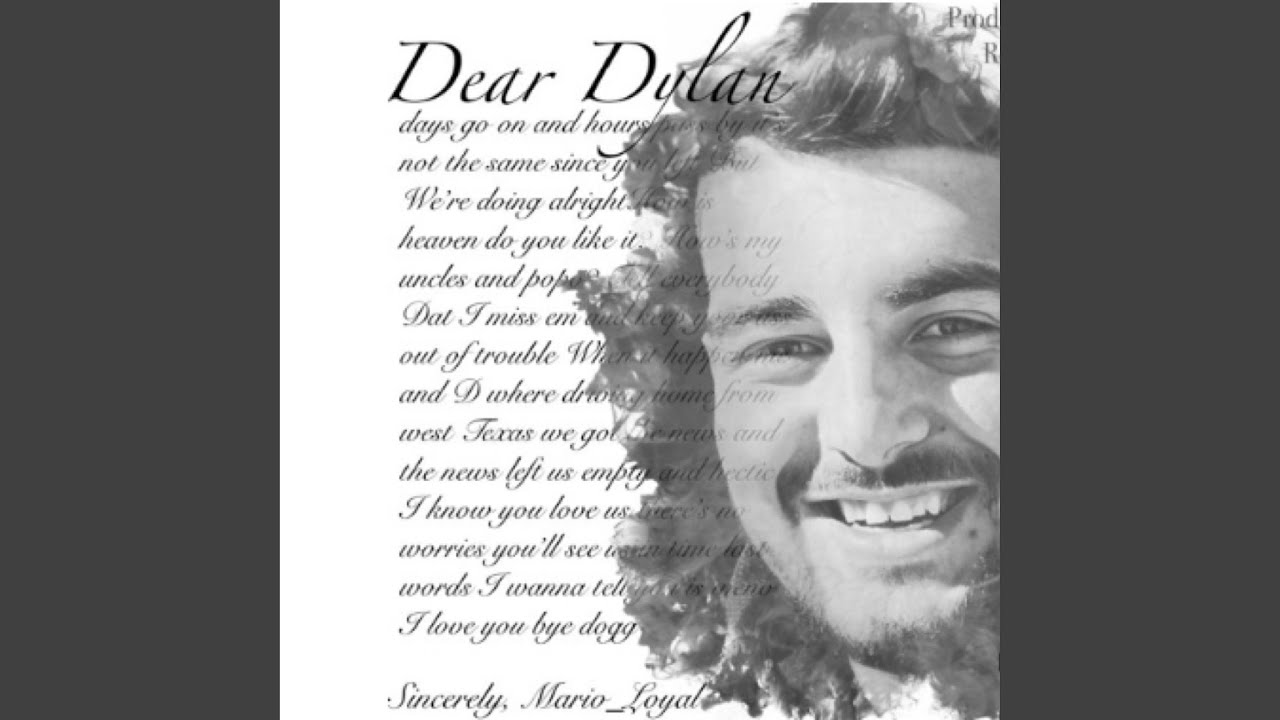 Prod
R
Dear Dylan
days go on and hours pass by it's
not the same since you left But
We're doing alright. How is
heaven do you like it? How's my
uncles and popo? Tell everybody
Dat I miss em and keep your ass
out of trouble When it happen me
and D where driving home from
west Texas we got the news and
the news left us empty and hectic
I know you love us there's no
worries you'll see us in time last
words I wanna tell you is
I love you bye dogg
Sincerely, Mario_Loyal